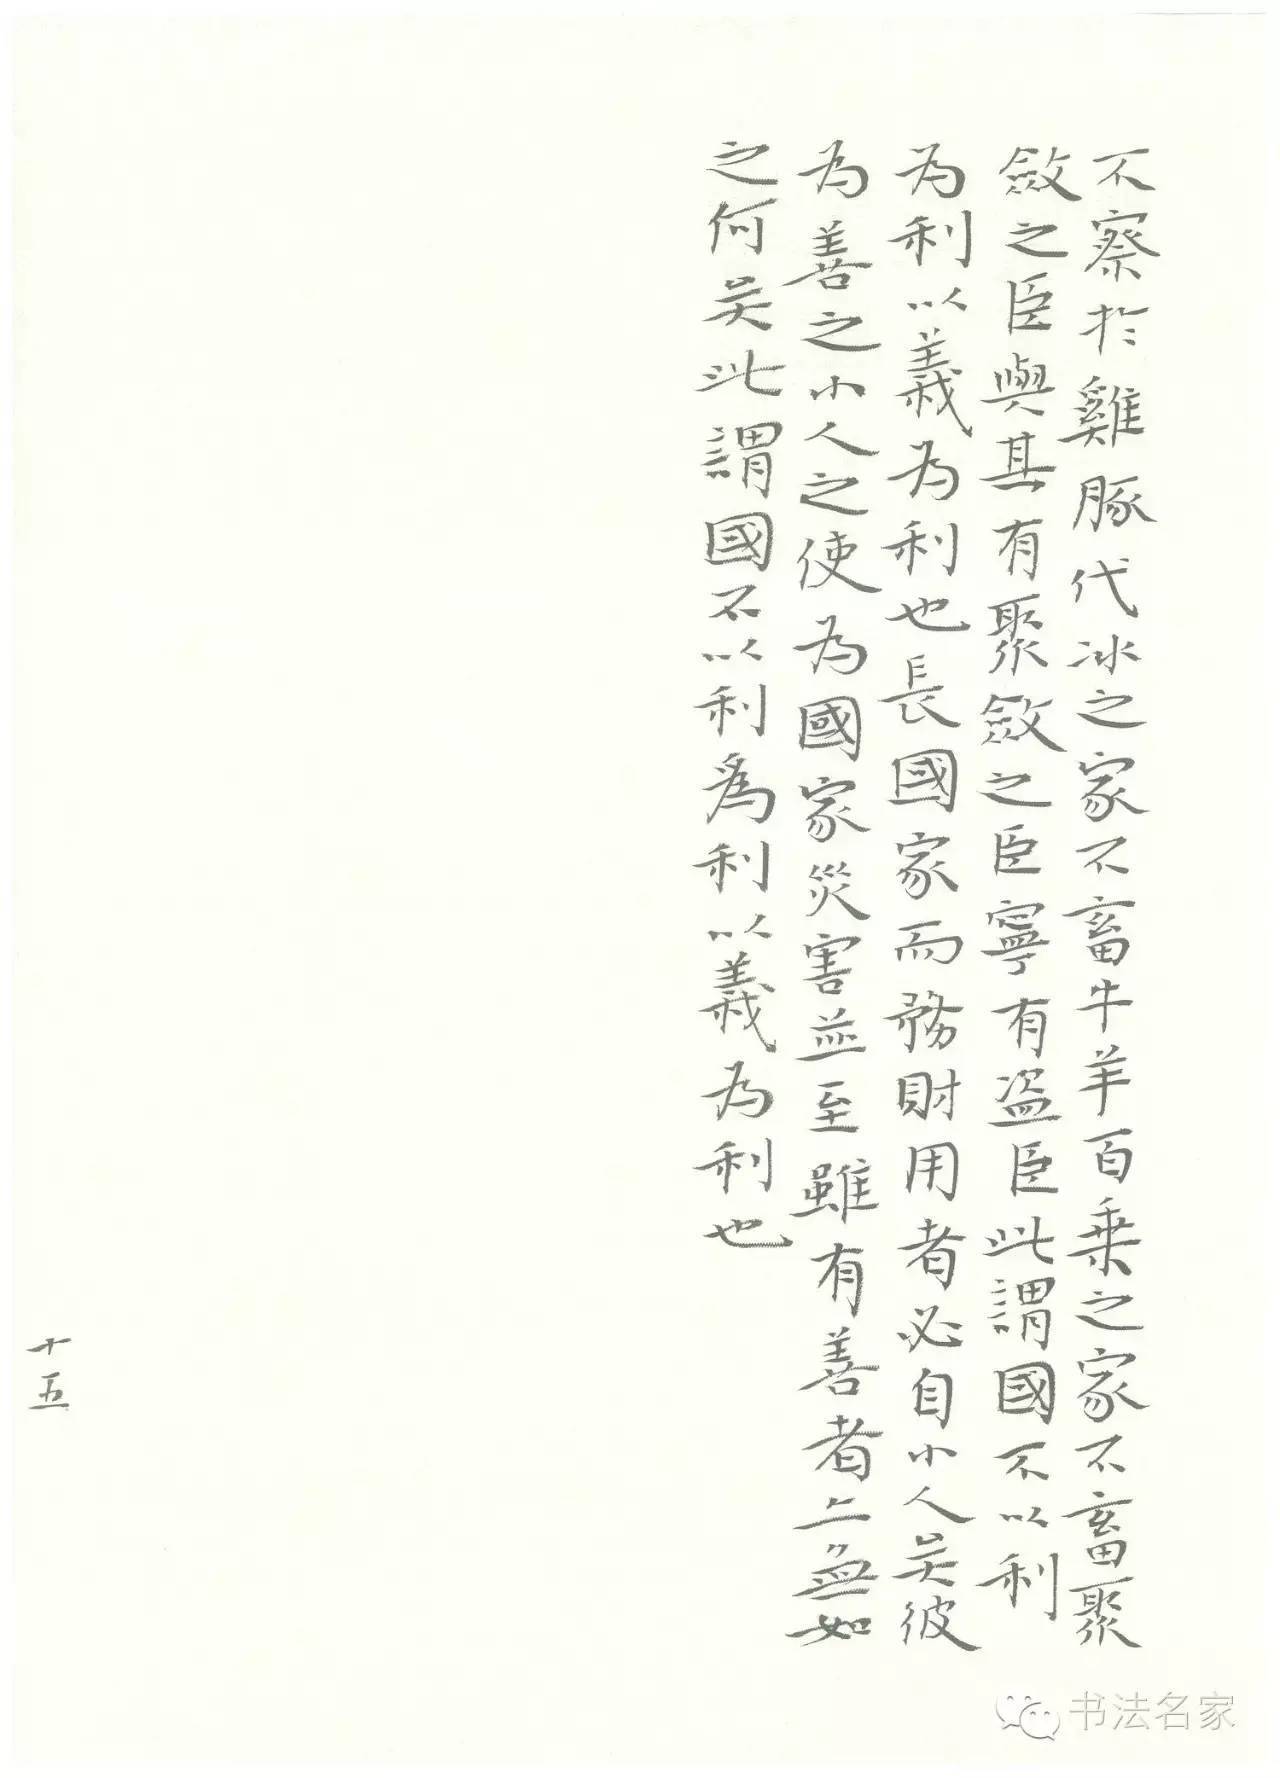 不察於雞豚伐冰之家不畜牛羊百乘之家不畜聚
斂之臣與其有聚斂之臣寧有盜臣此謂國不以利
為利以義為利也長國家而務財用者必自小人矣彼
為善之小人之使為國家災害並至雖有善者亦無如
之何矣此謂國不以利為利以義為利也
十五
书法名家